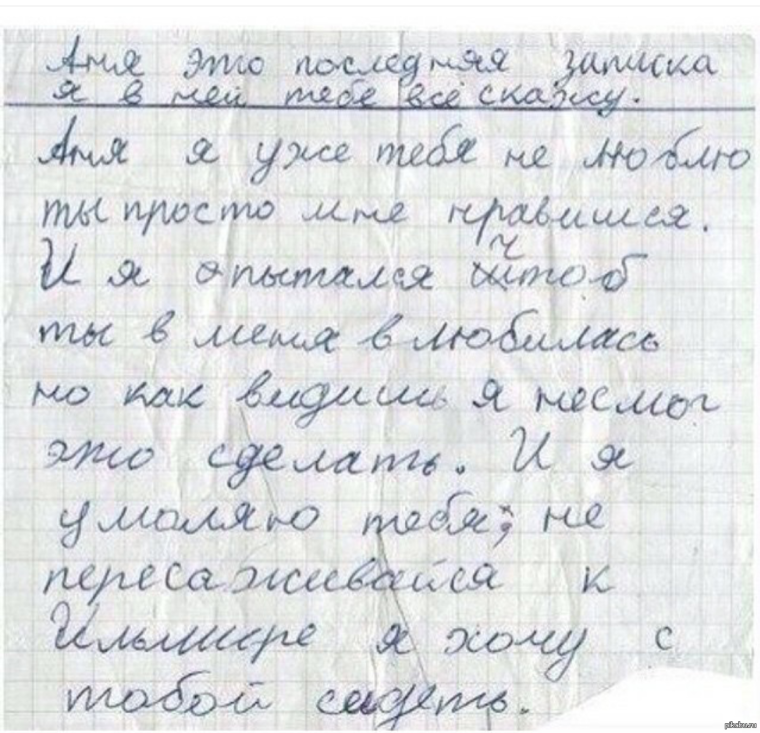 Аня это последняя записка
я в ней тебе всё скажу.
Аня я уже тебя не люблю
ты просто мне нравишся.
И я опытался чтоб
ты в меня влюбилась
но как видишь я несмог
это сделать. И я
умоляю тебя; не
пересаживайся к
Ильмире я хочу с
тобой сидеть.
pikabu.ru